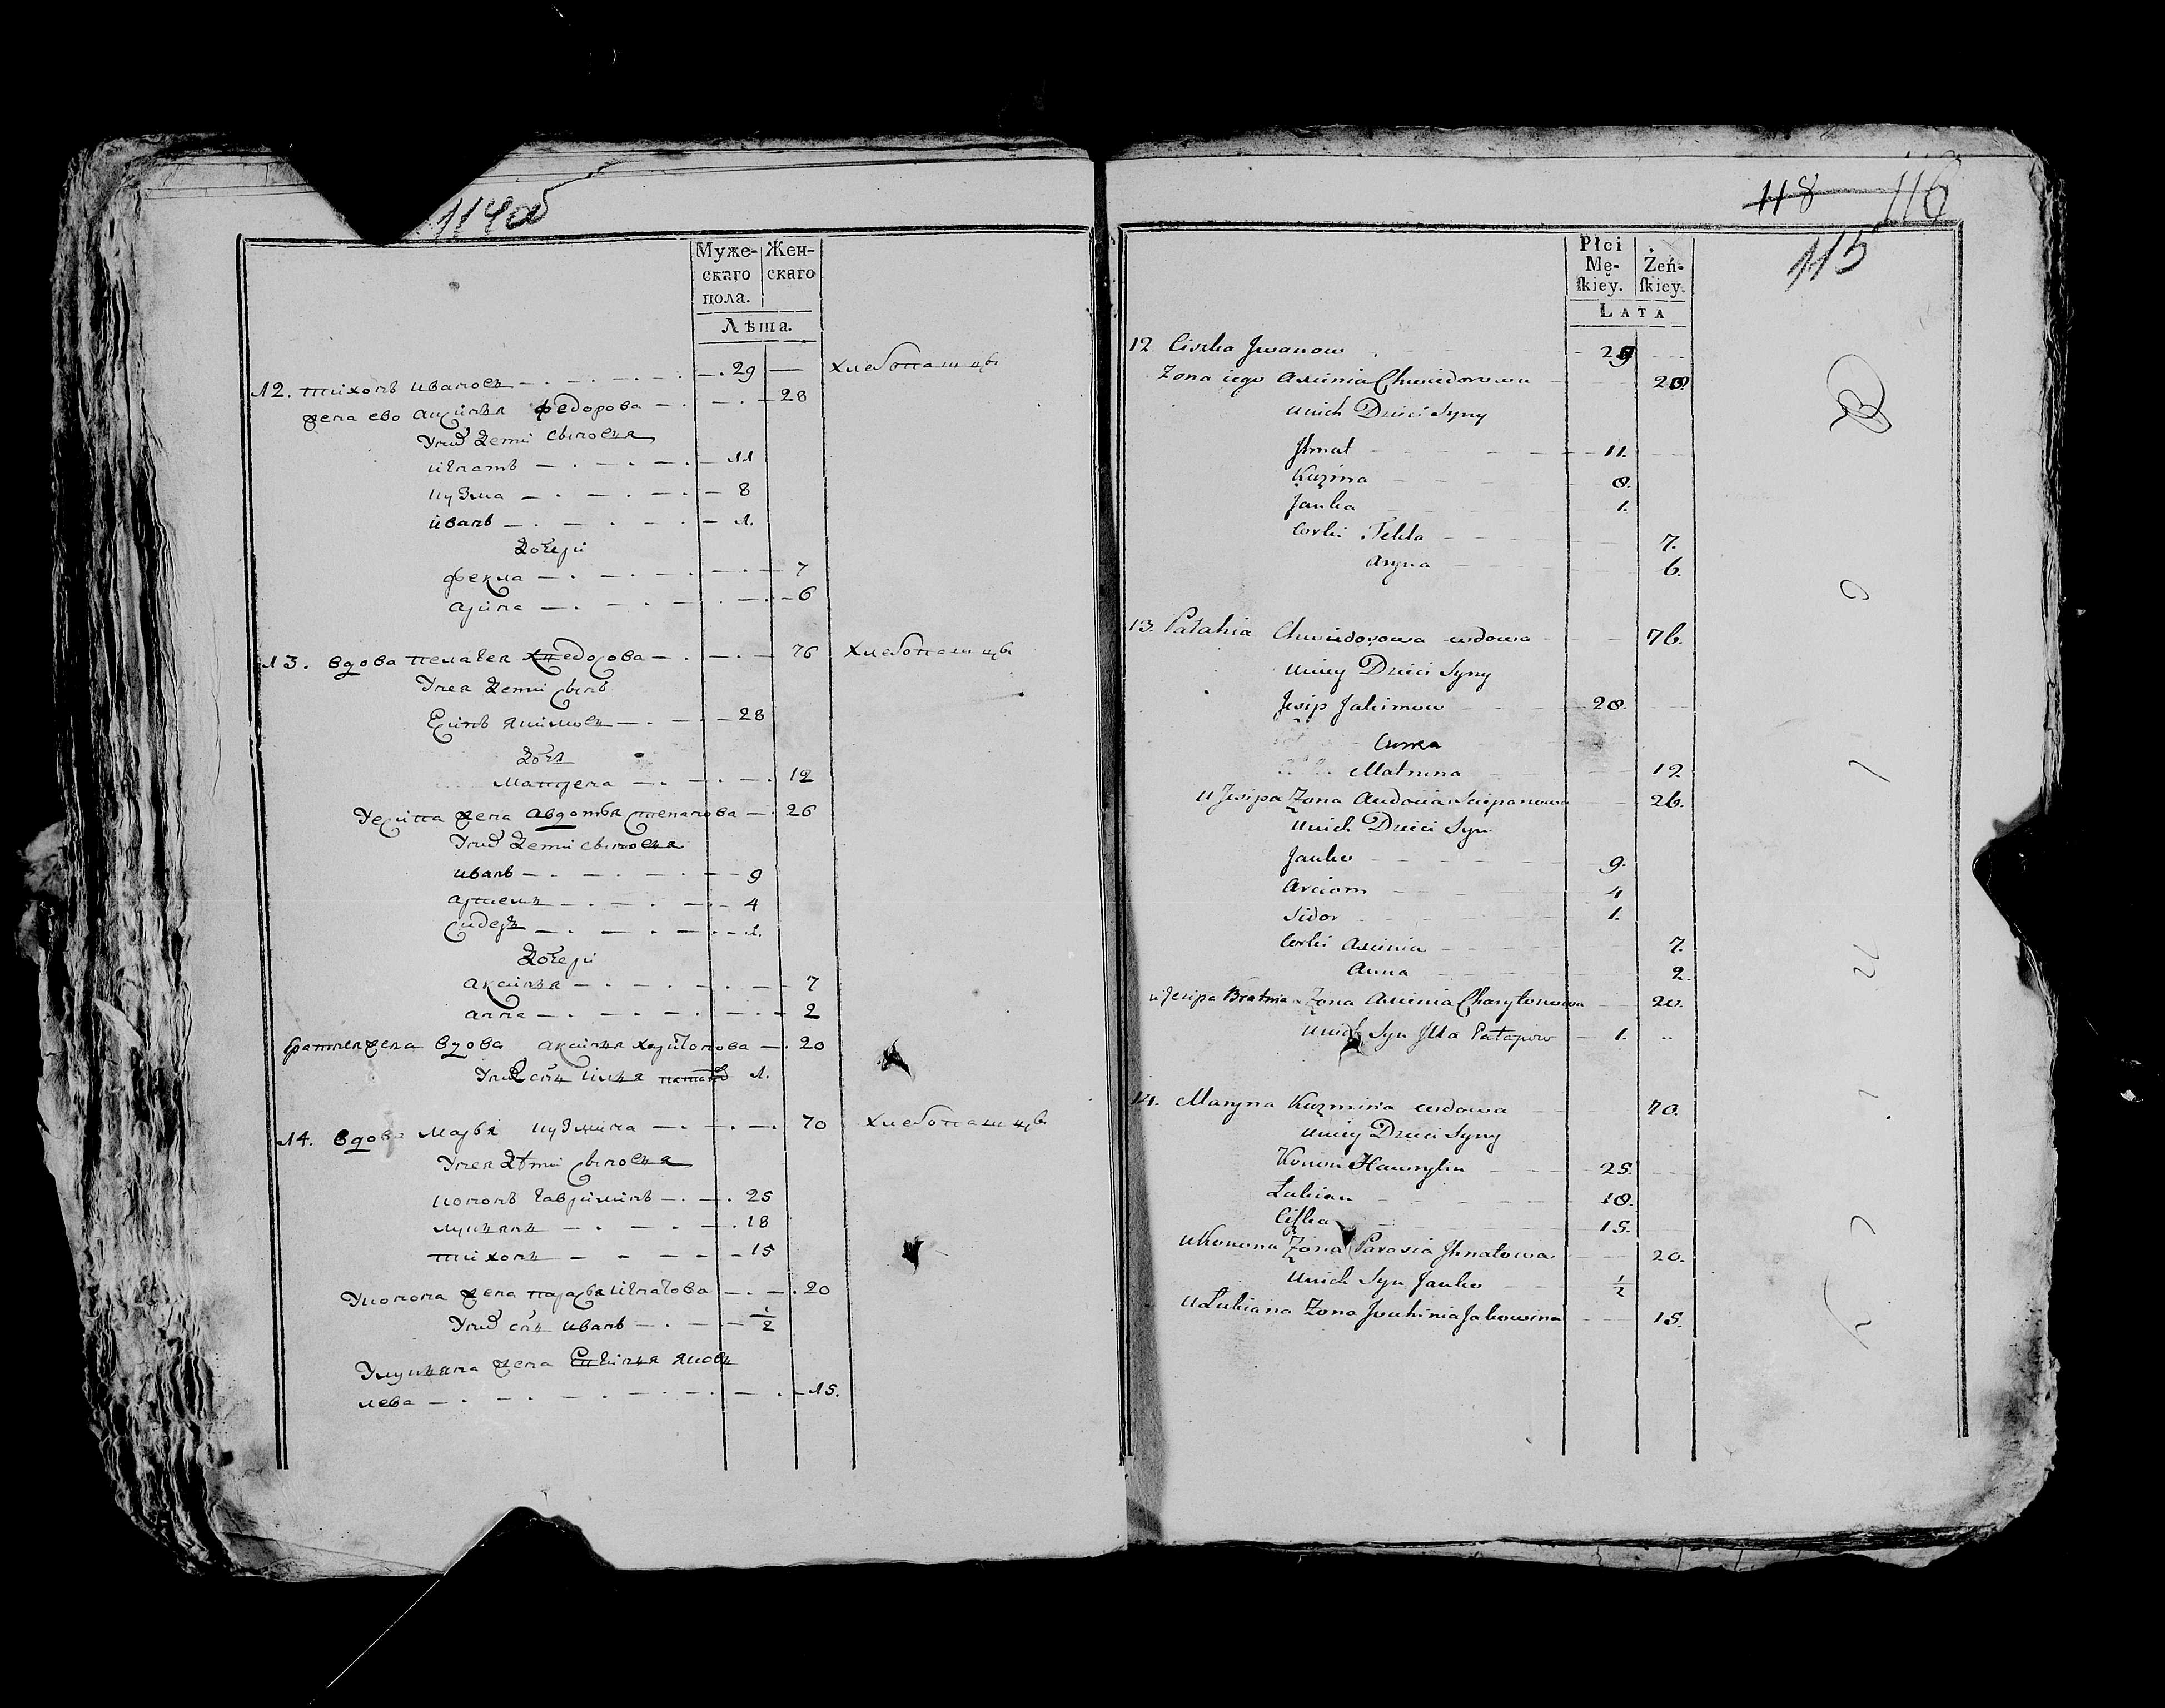 114об
Муже- Жен-
скаго скаго
пола.
Лѣта.
12. тихонъ ивановъ 29 хлебопашцы
жена ево аксинья федорова 28
У них дети сыновья
игнатъ 11
кузма 8
иванъ 1.
дочери
фекла 7
арина 6
13. вдова пелагея хведорова 76 хлебопашцы
У нея дети сынъ
Есипъ якимовъ 28
дочь
матрена 12
У есипа жена авдотья степанова 26
У них дети сыновья
иванъ 9
артемъ 4
сидоръ 1.
дочери
аксинья 7
анна 2
братнея жена вдова аксинья харитонова 20
У них сынъ илья 1.
14. вдова марья кузмина 70 хлебопашцы
У нея дѣти сыновья
кононъ гаврилинъ 25
лукьянъ 18
тихонъ 15
У конона жена парасья игнатова 20
У них сынъ иванъ 1/2
У лукьяна жена яков
лева 15.
118 116
115
Płci
Mę- Żeń-
ſkiey. ſkiey.
LATA
12. Ciszka Jwanow 29
Zona iego Axinia Chwiedorowa 28.
u nich Dzieci Syny
Jhnat 11.
Kuzma 8.
Janka 1.
Corki Tekla 7.
Aryna 6.
13. Palahia Chwiedorowa wdowa 76.
u niey Dzieci Syny
Jesip Jakimow 28.
Curka
Matruna 12
u Jesipa Zona Audocia Sciepanowa 26.
u nich Dzieci Syn
Janko 9.
Arciom 4
Sidor 1.
Corki Axinia 7.
Anna 2.
u Jesipa Bratnia Zona Axinia Charytonowa 20.
u nich Syn Jlla Patapow 1.
14. Maryna Kuzmina wdowa 70.
u niey Dzieci Syny
Konon Hawrylin 25.
Łukian 18.
Ciſzka 15.
u Konona Zona Parasia Jhnatowa 20.
u nich Syn Janko 1/2
u Łukiana Zona Jouhinia Jakowina 15.